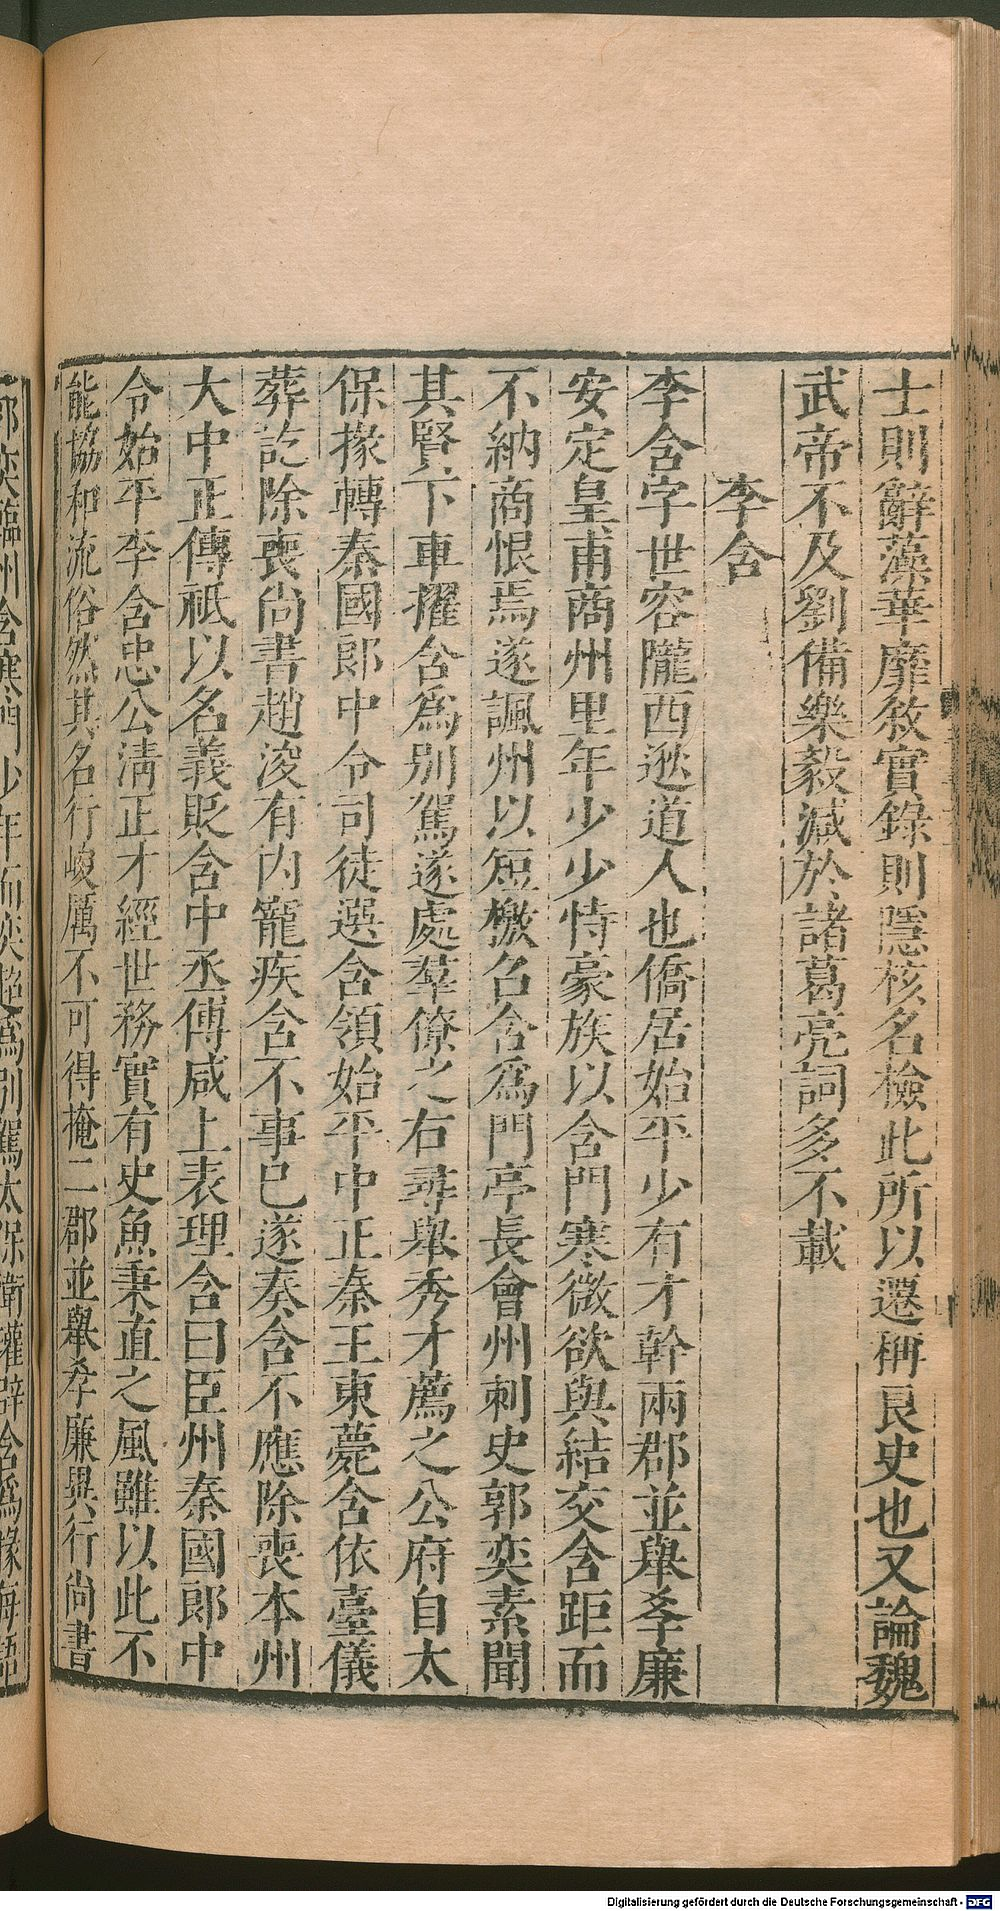 士則辭藻華靡敘實錄則隱核名檢此所以遷稱良史也又論魏
武帝不及劉備樂毅減於諸葛亮詞多不載
李含
李含字世容隴西狄道人也僑居始平少有才幹兩郡並舉孝廉
安定皇甫商州里年少少恃豪族以含門寒微欲與結交含距而
不納商恨焉遂諷州以短檄召含爲門亭長會州刺史郭奕素聞
其賢下車擢含爲別駕遂處羣僚之右尋舉秀才薦之公府自太
保掾轉秦國郎中令司徒選含領始平中正秦王東薨含依臺儀
葬訖除喪尚書趙浚有内寵疾含不事已遂奏含不應除喪本州
大中正傅祗以名義貶含中丞傅咸上表理含曰臣州秦國郎中
令始平李含忠公淸正才經世務實有史魚秉直之風雖以此不
能協和流俗然其名行峻厲不可得掩二郡並舉孝廉異行尚書
郭奕臨州含寒門少年而奕超爲別駕太保衛瓘辟含爲掾每語
Digitalisierung gefördert durch die Deutsche Forschungsgemeinschaft - DFG